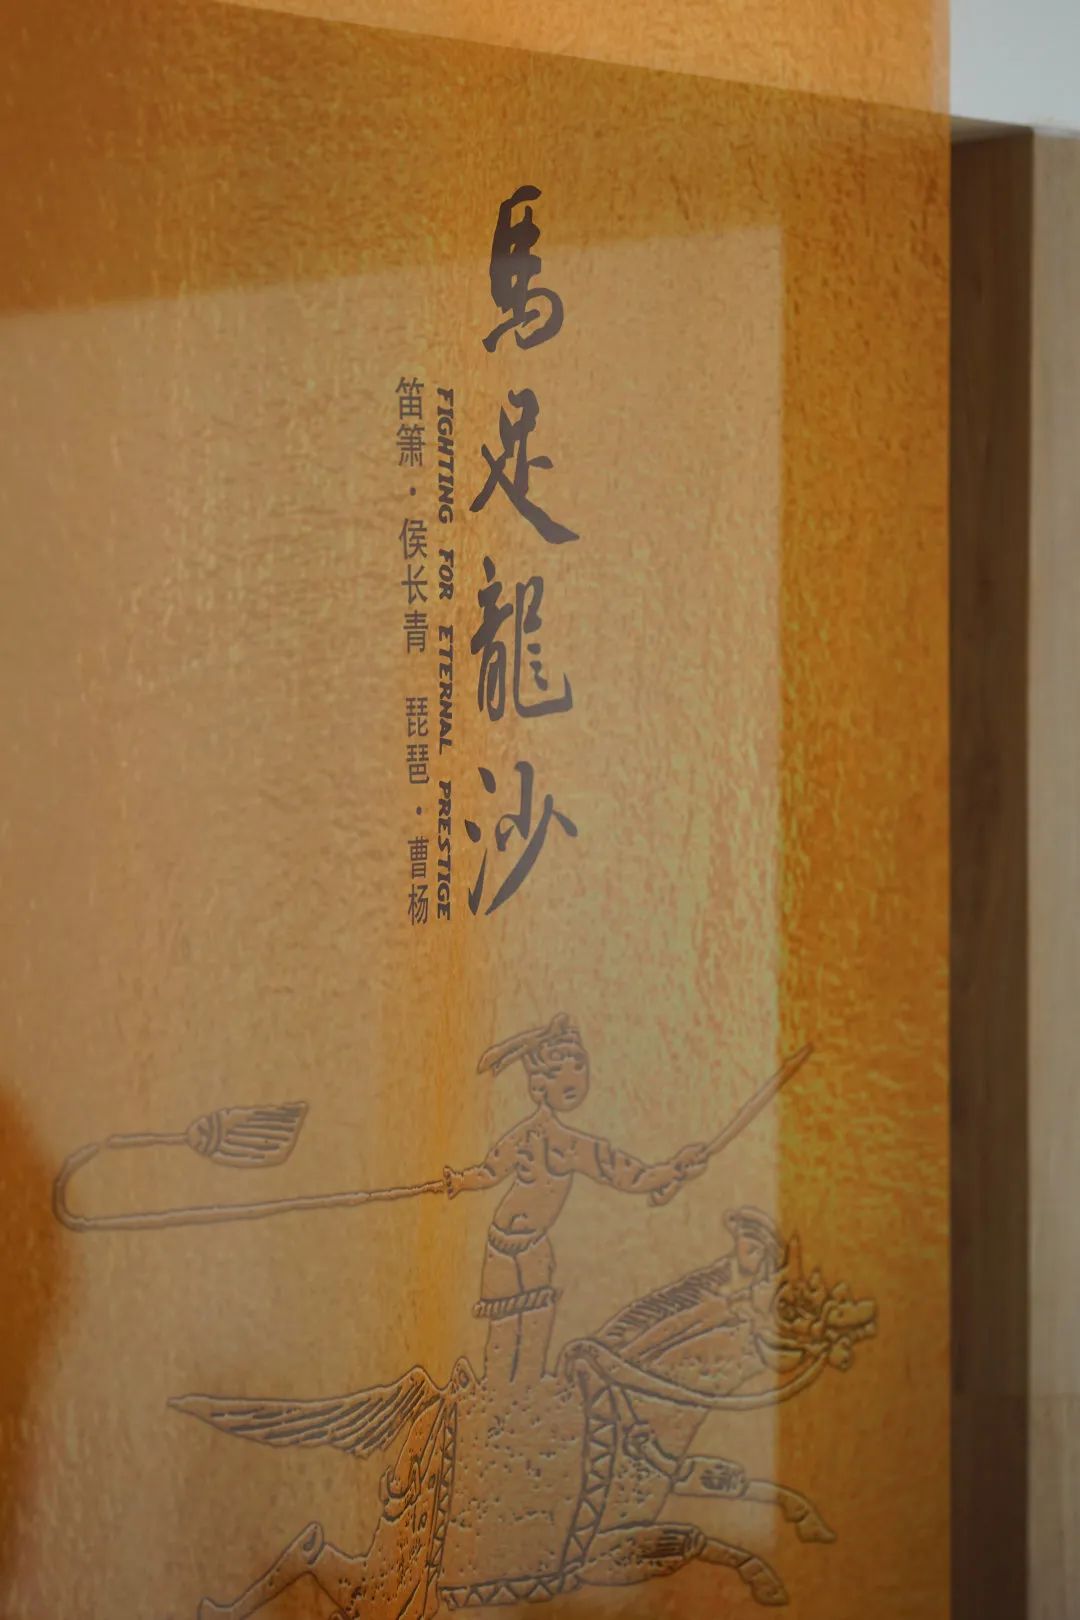 馬足龍沙
FIGHTING FOR ETERNAL PRESTIGE
笛箫·侯长青 琵琶·曹杨